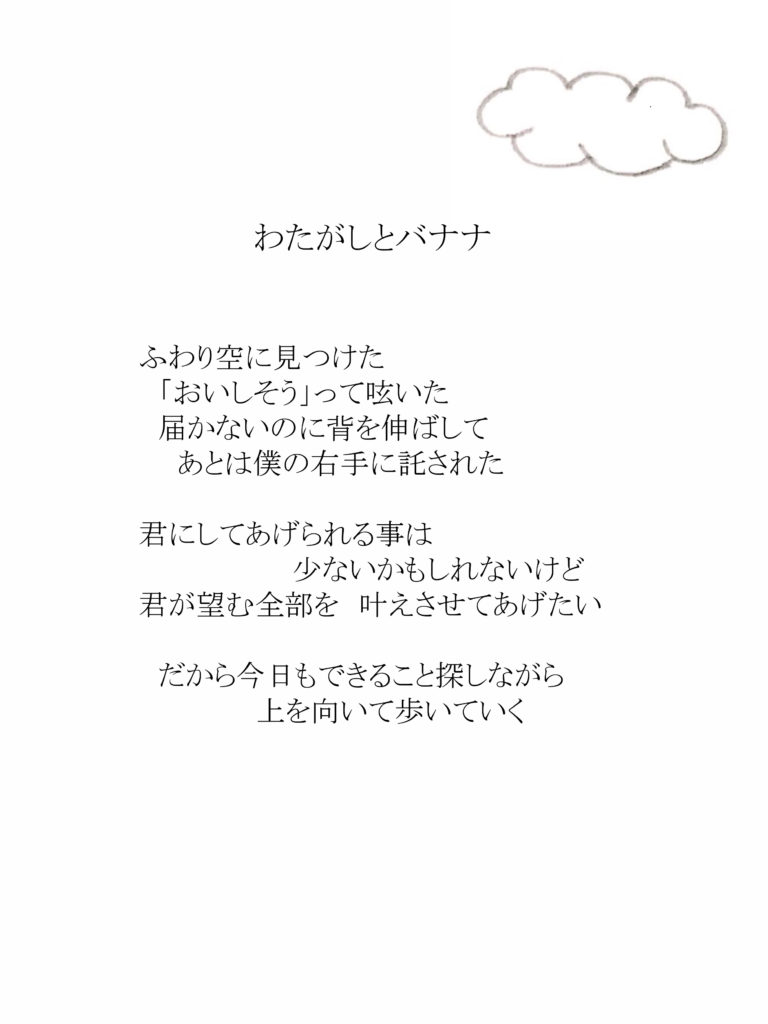 わたがしとバナナ
ふわり空に見つけた
「おいしそう」って呟いた
届かないのに背を伸ばして
あとは僕の右手に託された
君にしてあげられる事は
少ないかもしれないけど
君が望む全部を　叶えさせてあげたい
だから今日もできること探しながら
上を向いて歩いていく